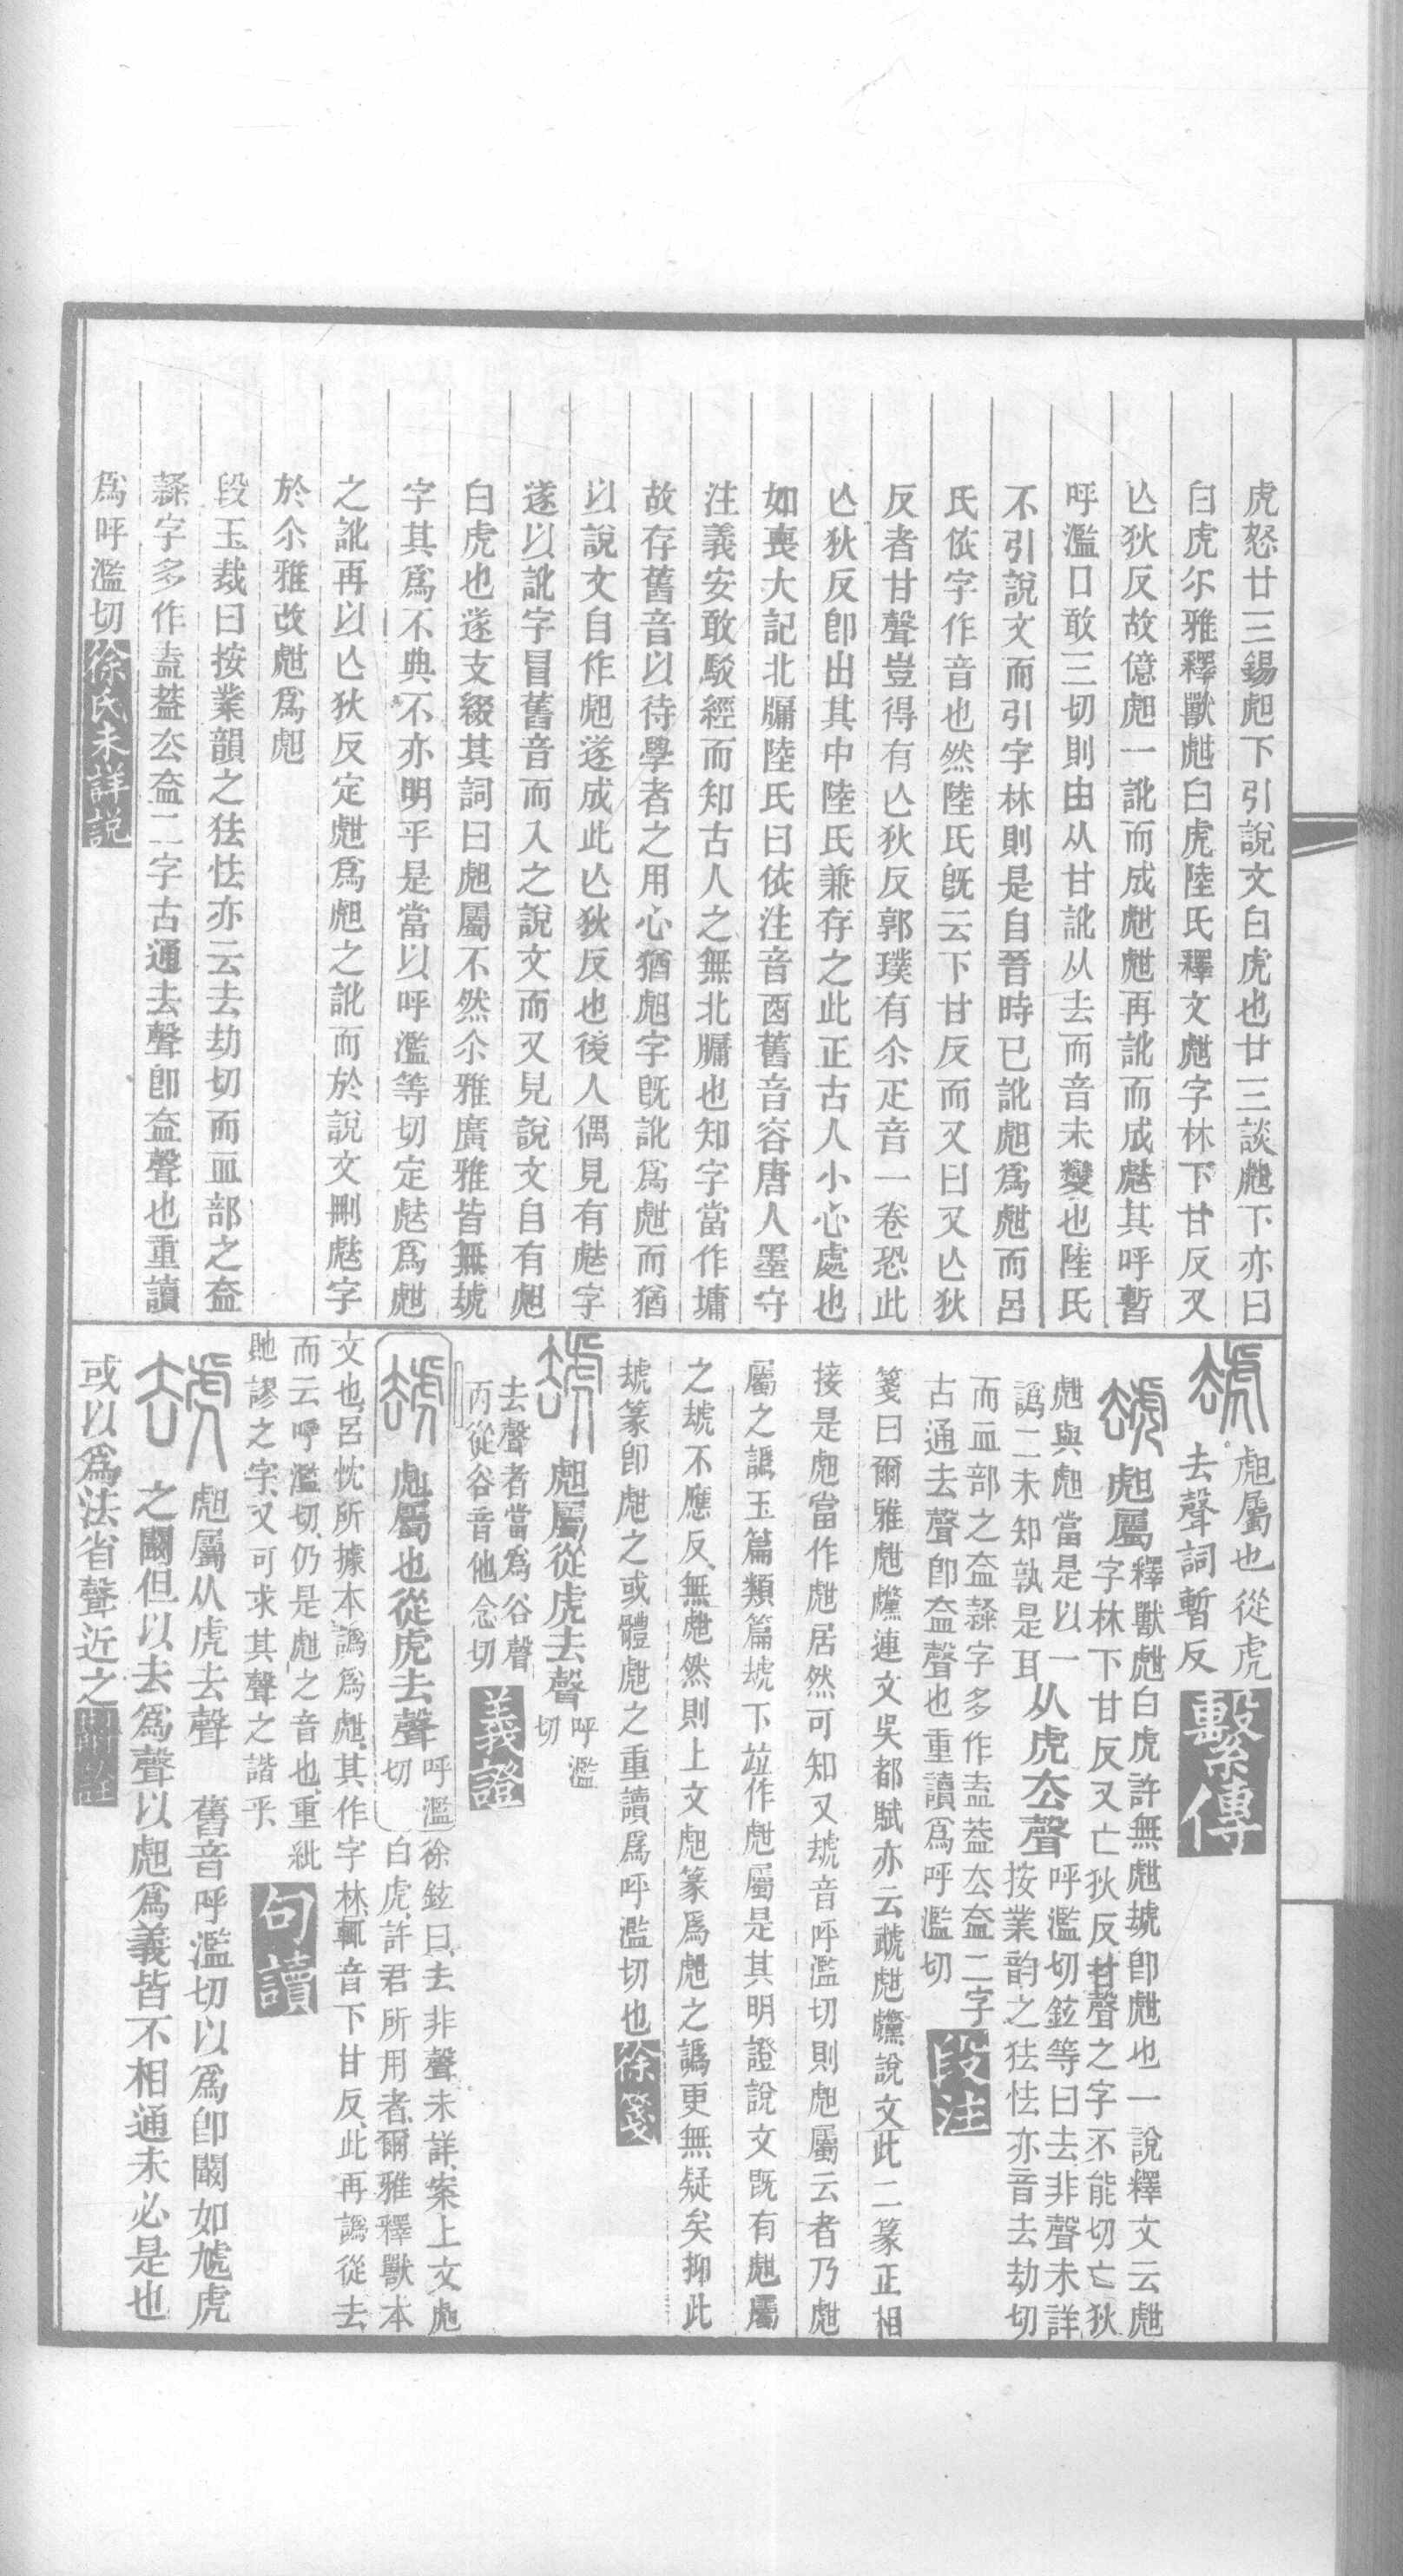 虎怒廿三錫䖧下引說文白虎也廿三談甝下亦曰
白虎尒雅釋獸甝白虎陸氏釋文甝字林下甘反又
亾狄反故億䖧一訛而成甝甝再訛而成𧇭其呼暫
呼濫口敢三切則由从甘訛从去而音未變也陸氏
不引說文而引字林則是自晉時已訛䖧爲甝而呂
氏依字作音也然陸氏旣云下甘反而又曰又亾狄
反者甘聲豈得有亾狄反郭璞有尒疋音一卷恐此
亾狄反卽出其中陸氏兼存之此正古人小心處也
如喪大記北牖陸氏曰依注音㐭舊音容唐人墨守
注義安敢駁經而知古人之無北牖也知字當作墉
故存舊音以待學者之用心猶䖧字旣訛爲甝而猶
以說文自作䖧遂成此亾狄反也後人偶見有𧇭字
遂以訛字冒舊音而入之說文而又見說文自有䖧
白虎也遂支綴其詞曰䖧屬不然尒雅廣雅皆無𧇭
字其爲不典不亦明乎是當以呼濫等切定𧇭爲甝
之訛再以亾狄反定甝爲䖧之訛而於說文刪𧇭字
於尒雅改甝爲䖧
段玉裁曰按業韻之㹤怯亦云去劫切而皿部之盇
隸字多作盍葢厺盇二字古通去聲卽盇聲也重讀
爲呼濫切徐氏未詳說
䖧屬也從虎
去聲詞暫反繫傳
䖧屬釋獸甝白虎許無甝𧇭卽甝也一說釋文云甝
字林下甘反又亡狄反甘聲之字不能切亡狄
甝與䖧當是以一
譌二未知孰是耳从虎厺聲呼濫切鉉等曰去非聲未詳
按業韵之㹤怯亦音去劫切
而皿部之盇隸字多作盍葢厺盇二字
古通去聲卽盇聲也重讀爲呼濫切段注
箋曰爾雅甝䖂連文吳都賦亦云虣甝䖂說文此二篆正相
接是䖧當作甝居然可知又𧇭音呼濫切則䖧屬云者乃甝
屬之譌玉篇類篇𧇭下竝作甝屬是其明證說文旣有䖧屬
之𧇭不應反無甝然則上文䖧篆爲甝之譌更無疑矣抑此
𧇭篆卽甝之或體甝之重讀爲呼濫切也徐箋
䖧屬從虎去聲呼濫
切
去聲者當爲谷聲
丙從谷音他念切義證
䖧屬也從虎去聲呼濫
切
徐鉉曰去非聲未詳案上文䖧
白虎許君所用者爾雅釋獸本
文也呂忱所據本譌爲甝其作字林輒音下甘反此再譌從去
而云呼濫切仍是甝之音也重紕
貤謬之字又可求其聲之諧乎句讀
䖧屬从虎去聲 舊音呼濫切以爲卽闞如虓虎
之闞但以去爲聲以䖧爲義皆不相通未必是也
或以爲法省聲近之